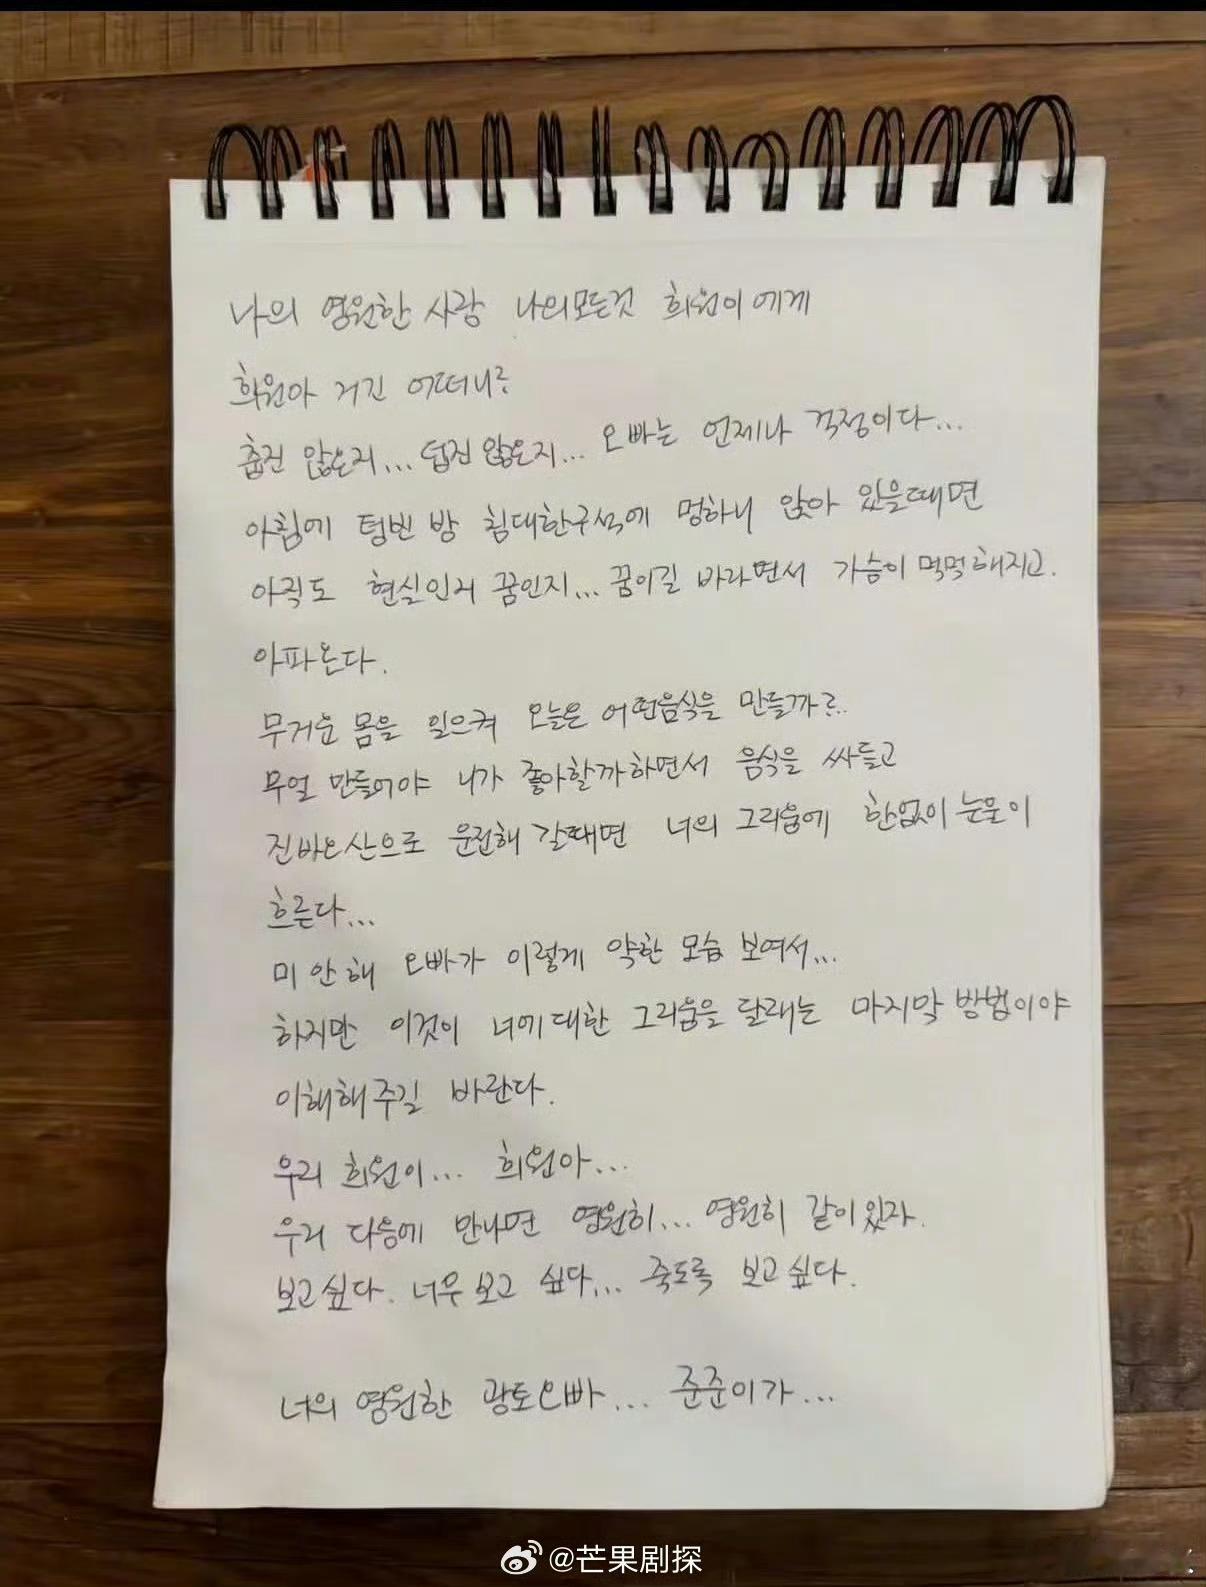 나의 영원한 사랑 나의모든것 희원이에게
희원아 거긴 어떠니?
춥진 않은지... 덥진 않은지... 오빠는 언제나 걱정이다...
아침에 텅빈 방 침대한구석에 멍하니 앉아 있을때면
아직도 현실인지 꿈인지... 꿈이길 바라면서 가슴이 먹먹해지고.
아파온다.
무거운 몸을 일으켜 오늘은 어떤음식을 만들까?..
무얼 만들어야 니가 좋아할까하면서 음식을 싸들고
진바오산으로 운전해 갈때면 너의 그리움에 한없이 눈물이
흐른다...
미안해 오빠가 이렇게 약한 모습 보여서...
하지만 이것이 너에대한 그리움을 달래는 마지막 방법이야
이해해주길 바란다.
우리 희원이... 희원아...
우리 다음에 만나면 영원히... 영원히 같이있자.
보고싶다. 너무 보고 싶다... 죽도록 보고싶다.
너의 영원한 광토오빠... 준준이가...
@芒果剧探